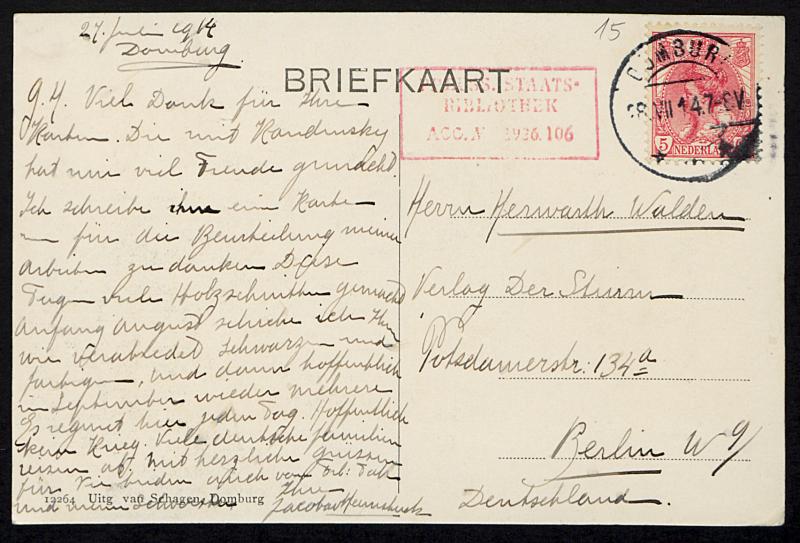 27. Juli 1914
Domburg.
15
BRIEFKAART
STAATS-
BIBLIOTHEK
ACC. 1926.106
DOMBURG
28.VII 14.7-8V
5 NEDERLAND
g. H. Viel Dank für Ihre
Karten. Die mit Kandinsky
hat mir viel Freude gemacht.
Ich schreibe ihm ein Karte
um für die Beurteilung meiner
Arbeiten zu danken Diese
Tage viele Holzschnitten gemacht
anfang august schicke ich Ihnen
wie verabredet schwarzen und
farbigen, und dann hoffentlich
in September wieder mehrere
Es regnet hier jeden Tag. Hoffentlich
kein Krieg. Viele deutsche familien
reisen ab. Mit herzliche grüssen
für Sie beiden auch von
und meine Schwester
Ihre
Jacoba v Heemskerck
12264 Uitg van Schagen, Domburg
Herrn Herwarth Walden
Verlag Der Sturm
Potsdamerstr. 134a
Berlin W 9/
Deutschland.